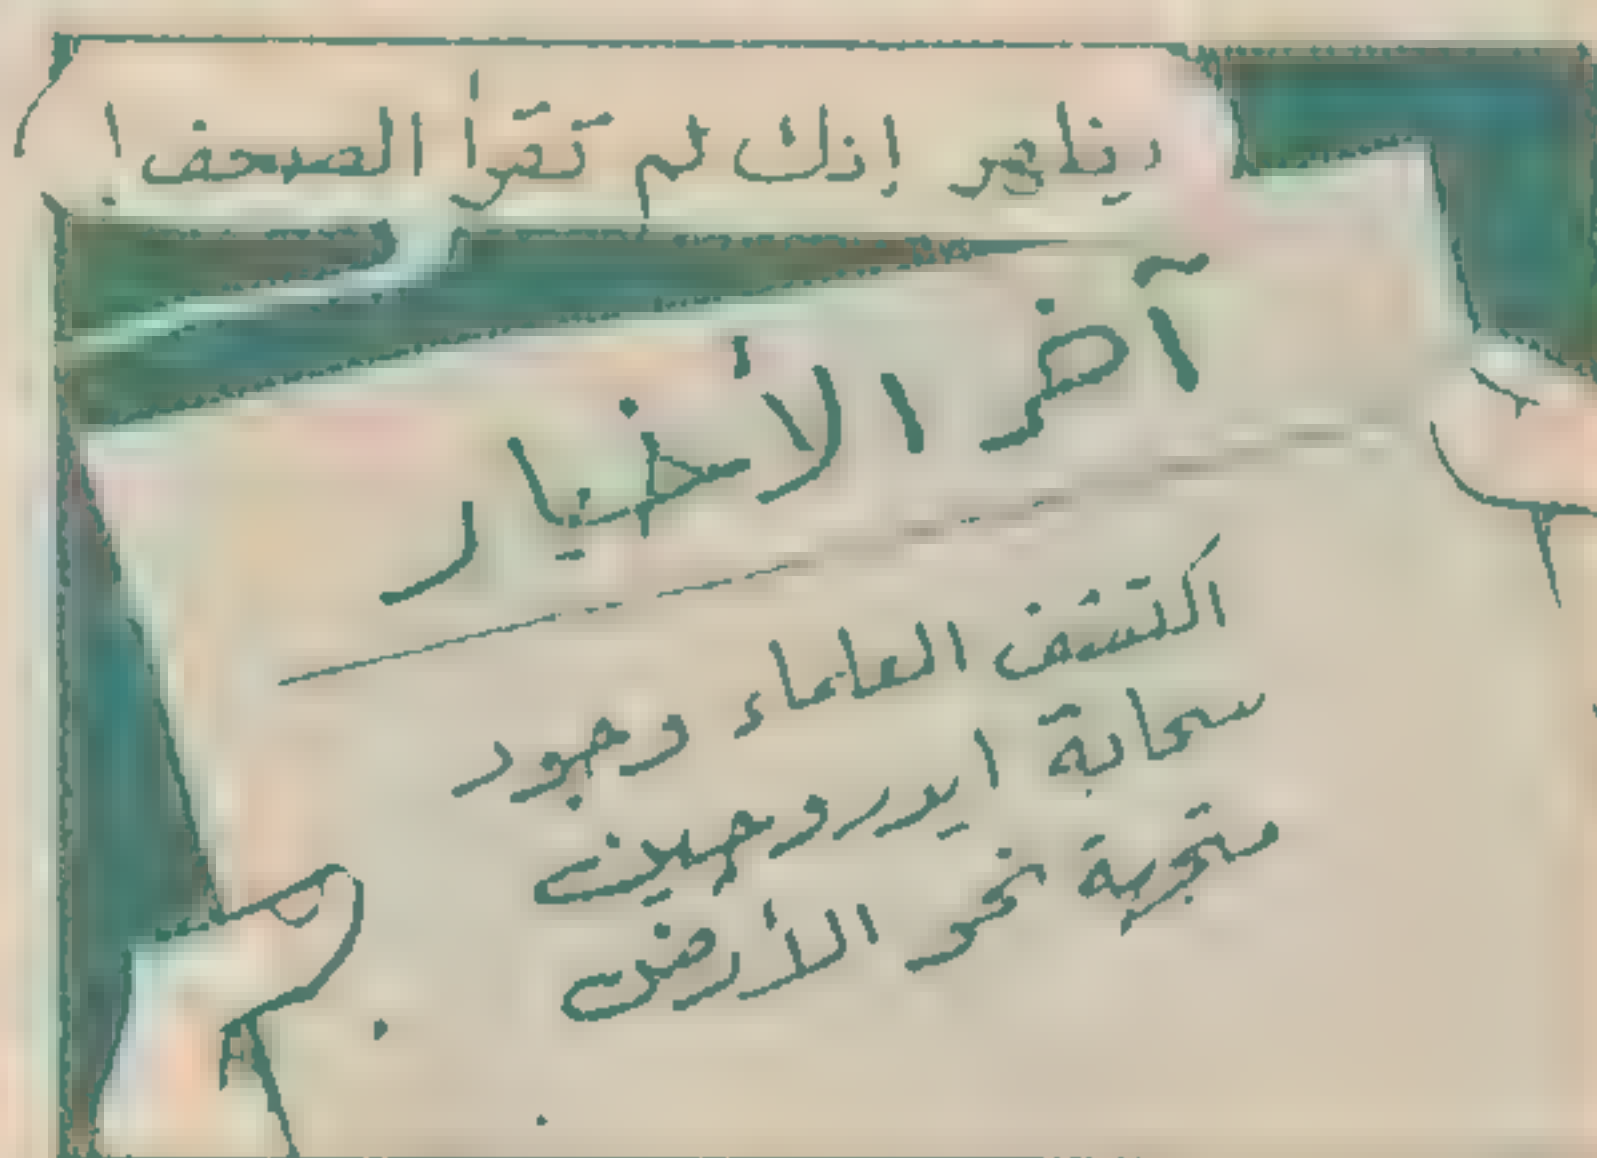 يظهر إنك لم تقرأ الصحف!
آخر الأخبار
اكتشف العلماء وجود
سحابة ايدروجين
متجهة نحو الأرض